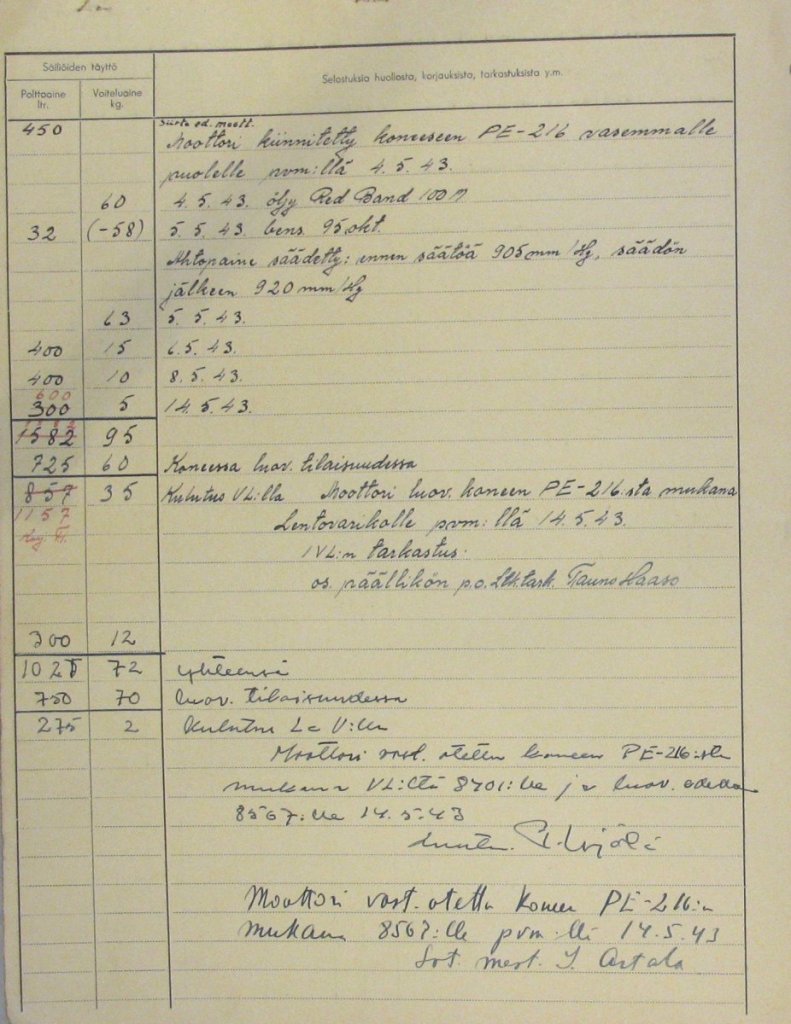 Säiliöiden täyttö
Polttoaine ltr.
Voiteluaine kg.
Selostuksia huollosta, korjauksista, tarkastuksista y.m.
450 Siirto ed. moott.
Moottori kiinnitetty koneeseen PE-216 vasemmalle
puolelle pvm:llä 4.5.43.
60 4.5.43. öljy Red Band 100
32 (-58) 5.5.43. bens. 95 okt.
Ahtopaine säädetty: ennen säätöä 905 mm/Hg, säädön
jälkeen 920 mm/Hg
63 5.5.43.
400 15 6.5.43.
400 10 8.5.43.
600
300 5 14.5.43.
1582 95
725 60 Koneessa luov. tilaisuudessa
857 35 Kulutus VL:llä Moottori luov. koneen PE-216:sta mukana
1157 Lentovarikolle pvm:llä 14.5.43.
IVL:n tarkastus.
os. päällikön p.o. Ltk.tark. Tauno Haaso
300 12
1025 72 yhteensä
750 70 luov. tilaisuudessa
275 2 Kulutus
Moottori vast. otettu koneen PE-216:sta
mukana VL:ltä 8401:lle ja luov. edelleen
8567:lle 14.5.43
Moottori vast. otettu koneen PE-216:n
mukana 8567:lle pvm:llä 14.5.43
Sot. mest.